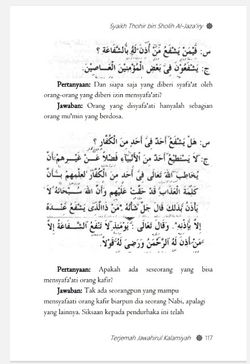 Syaikh Thohir bin Sholih Al-Jaza'iry
س: فَيْمَنْ يَشْفَعُ مَنْ أُذِنَ لَهُ بِالشَّفَاعَةِ ؟
ج: يَشْفَعُوْنَ فِى بَعْضِ الْمُؤْمِنِيْنَ الْعَاصِيْنَ.
Pertanyaan: Dan siapa saja yang diberi syafa'at oleh
orang-orang yang diberi izin mensyafa'ati?
Jawaban: Orang yang disyafa'ati hanyalah sebagian
orang mu'min yang berdosa.
س: هَلْ يَشْفَعُ أَحَدٌ فِى أَحَدٍ مِنَ الْكُفَّارِ ؟
ج: لَا يَسْتَطِيْعُ أَحَدٌ مِنَ الْأَنْبِيَاءِ فَضْلًا عَنْ غَيْرِهِمْ أَنْ
يُخَاطِبَ اللهَ تَعَالَى فِى أَحَدٍ مِنَ الْكُفَّارِ لِعِلْمِهِمْ بِأَنَّ
كَلِمَةَ الْعَذَابِ قَدْ حَقَّتْ عَلَيْهِمْ وَأَنَّ اللهَ سُبْحَانَهُ لَا
يَأْذَنُ بِذَلِكَ قَالَ جَلَّ شَأْنُهُ: مَنْ ذَا الَّذِى يَشْفَعُ عِنْدَهُ
إِلَّا بِإِذْنِهِ. وَقَالَ تَعَالَى: يَوْمَئِذٍ لَا تَنْفَعُ الشَّفَاعَةُ إِلَّا
مَنْ أَذِنَ لَهُ الرَّحْمَنُ وَرَضِيَ لَهُ قَوْلًا.
Pertanyaan: Apakah ada seseorang yang bisa
mensyafa'ati orang kafir?
Jawaban: Tak ada seorangpun yang mampu
mensyafaati orang kafir biarpun dia seorang Nabi, apalagi
yang lainnya. Siksaan kepada pendurhaka ini telah
Terjemah Jawahirul Kalamiyah 117